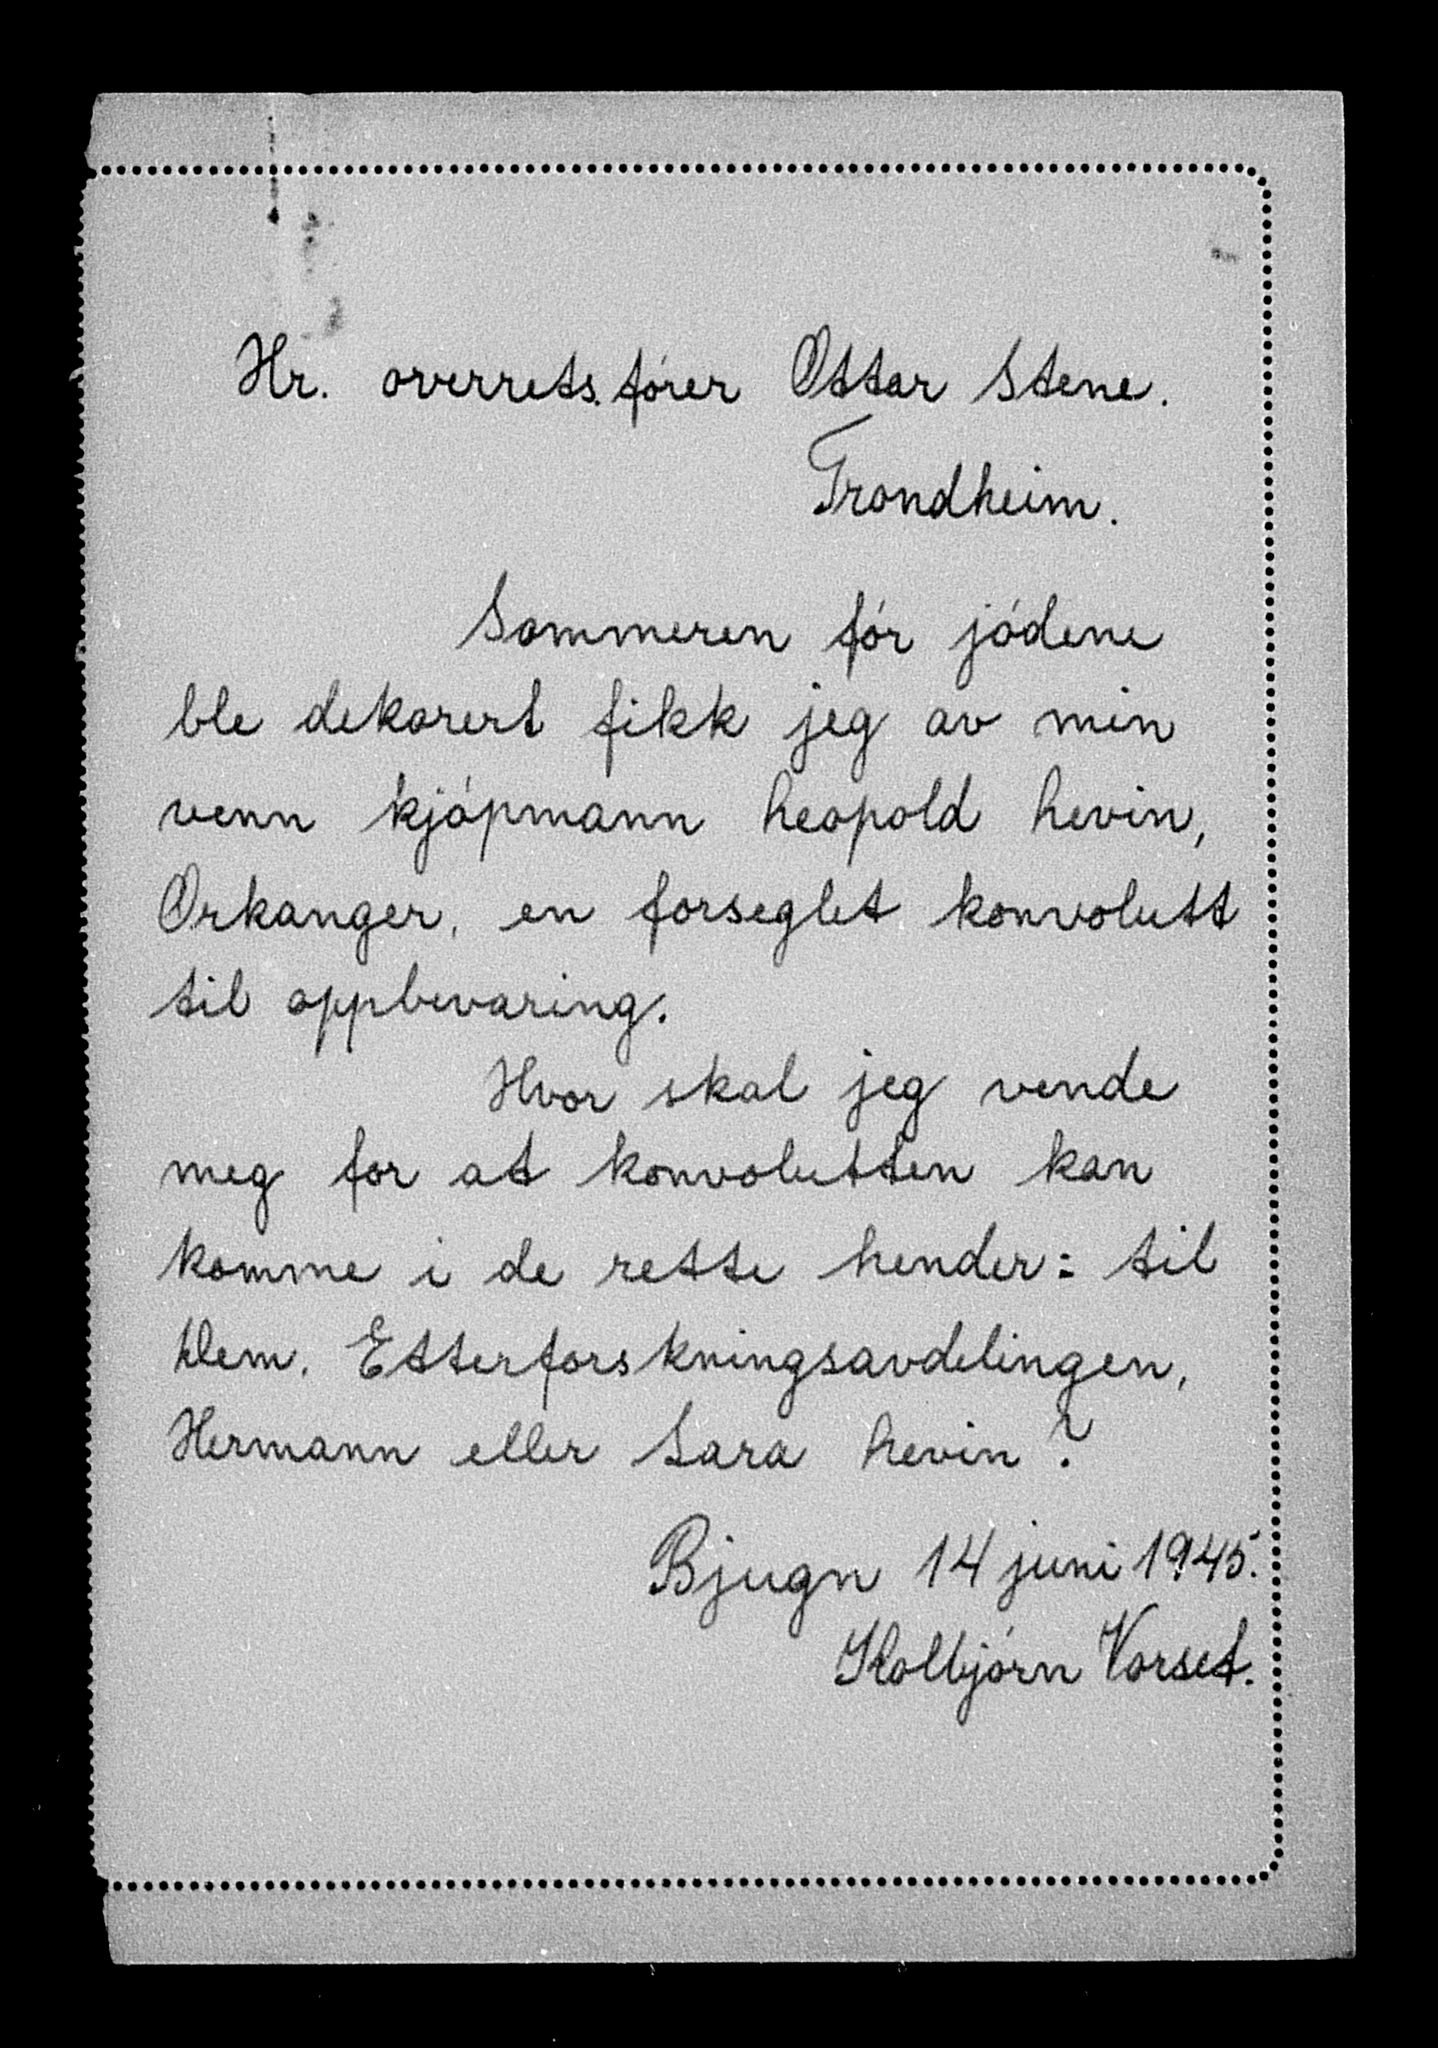 Hr. overrets.fører Ottar Stene.
Trondheim.
Sommeren før jødene
ble dekorert fikk jeg av min
venn kjøpmann Leopold Levin,
Orkanger, en forseglet konvolutt
til oppbevaring.
Hvor skal jeg vende
meg for at konvolutten kan
komme i de rette hender: til
dem. Etterforskningsavdelingen,
Hermann eller Sara Levin?
Bjugn 14 juni 1945.
Kolbjørn Vorset.